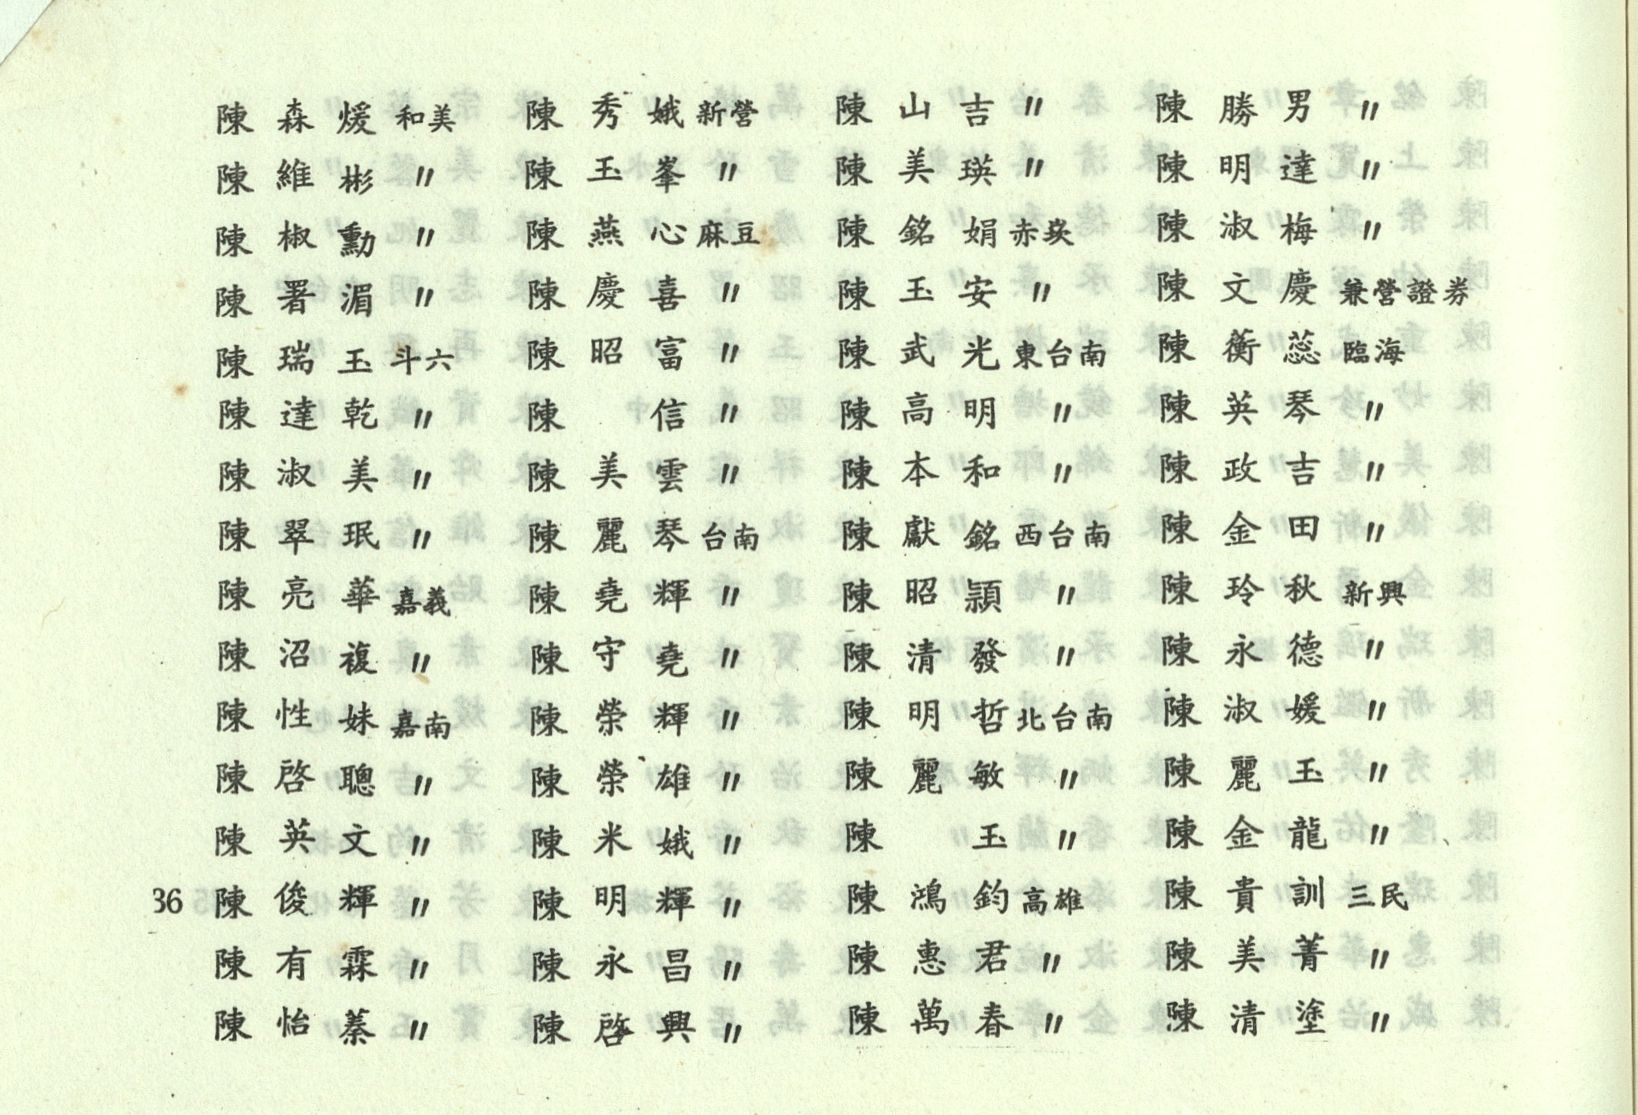 陳森煖 和美
陳維彬 〃
陳椒勳 〃
陳署湄 〃
陳瑞玉 斗六
陳達乾 〃
陳淑美 〃
陳翠珉 〃
陳亮華 嘉義
陳沼複 〃
陳性妹 嘉南
陳啓聰 〃
陳英文 〃
陳俊輝 〃
陳有霖 〃
陳怡蓁 〃
陳秀娥 新營
陳玉峯 〃
陳燕心 麻豆
陳慶喜 〃
陳昭富 〃
陳信 〃
陳美雲 〃
陳麗琴 台南
陳堯輝 〃
陳守堯 〃
陳榮輝 〃
陳榮雄 〃
陳米娥 〃
陳明輝 〃
陳永昌 〃
陳啓興 〃
陳山吉 〃
陳美瑛 〃
陳銘娟 赤崁
陳玉安 〃
陳武光 東台南
陳高明 〃
陳本和 〃
陳獻銘 西台南
陳昭頴 〃
陳清發 〃
陳明哲 北台南
陳麗敏 〃
陳玉 〃
陳鴻鈞 高雄
陳惠君 〃
陳萬春 〃
陳勝男 〃
陳明達 〃
陳淑梅 〃
陳文慶 兼營證券
陳蘅蕊 臨海
陳英琴 〃
陳政吉 〃
陳金田 〃
陳玲秋 新興
陳永德 〃
陳淑媛 〃
陳麗玉 〃
陳金龍 〃
陳貴訓 三民
陳美菁 〃
陳清塗 〃
36